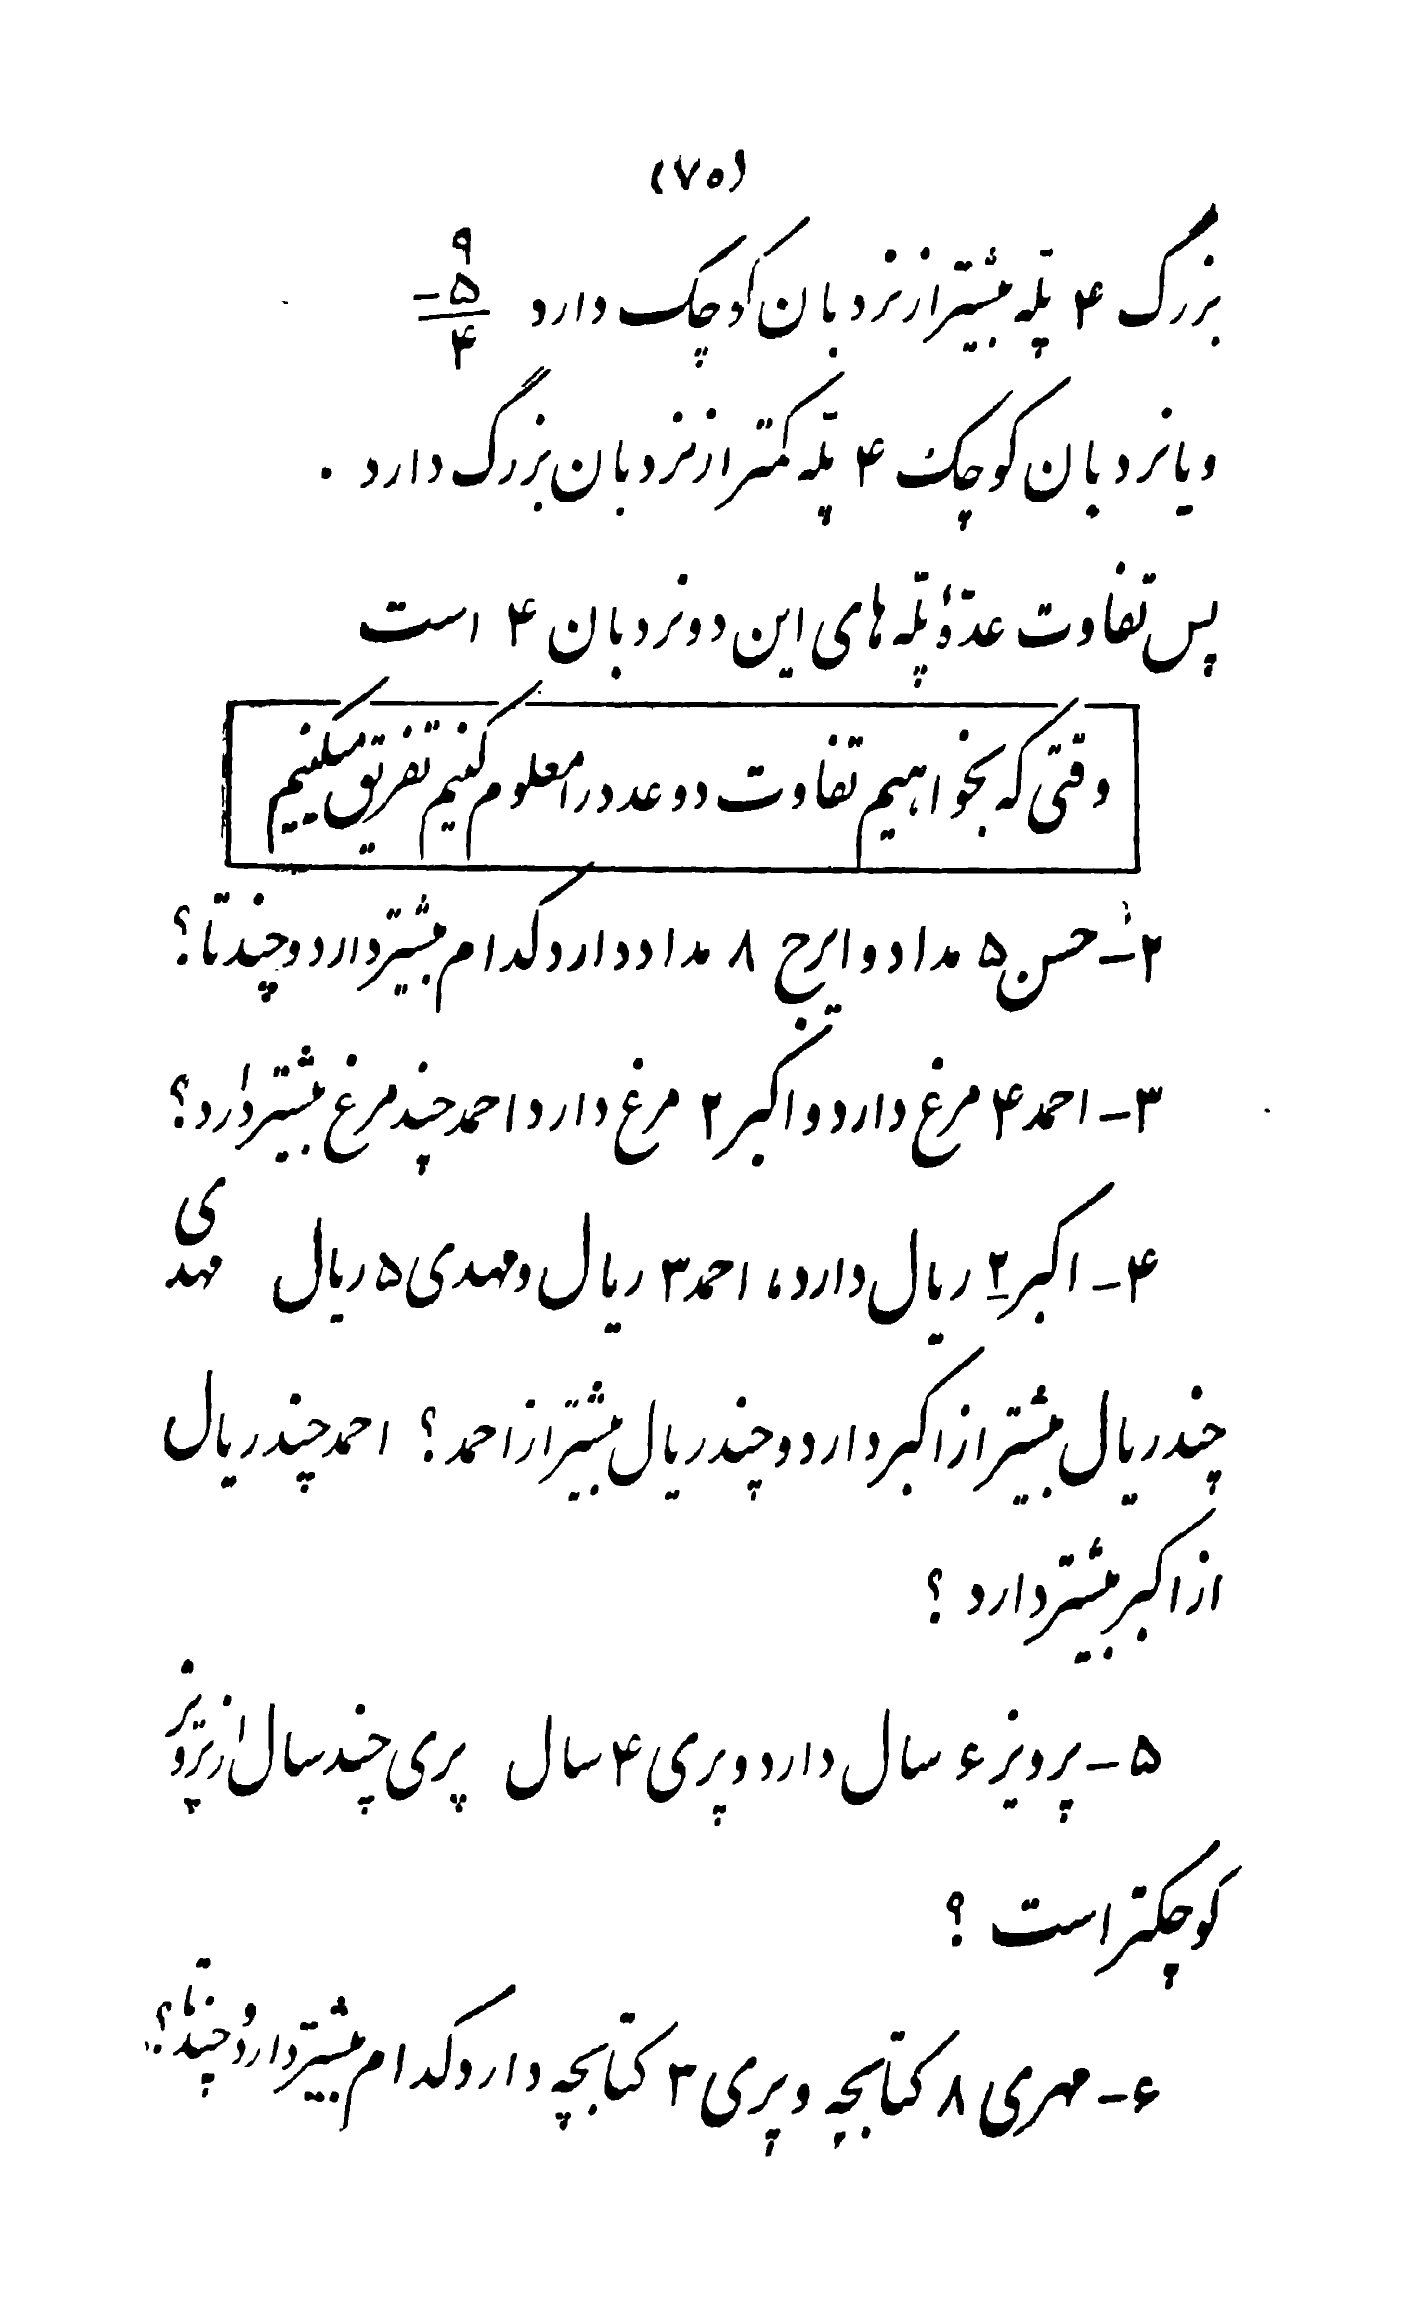 (۷۰)
بزرگ ۴ پلّه بیشتر از نردبان کوچک دارد
۹
-۵
۴
و یا نردبان کوچک ۴ پلّه کمتر از نردبان بزرگ دارد .
پس تفاوت عدّهٔ پلّه های این دو نردبان ۴ است
وقتی که بخواهیم تفاوت دو عدد را معلوم کنیم تفریق میکنیم
۲- حسن ۵ مداد و ایرج ۸ مداد دارد کدام بیشتر دارد و چند تا؟
۳- احمد ۴ مرغ دارد و اکبر ۲ مرغ دارد احمد چند مرغ بیشتر دارد؟
۴- اکبر ۲ ریال دارد، احمد ۳ ریال و مهدی ۵ ریال مهدی
چند ریال بیشتر از اکبر دارد و چند ریال بیشتر از احمد؟ احمد چند ریال
از اکبر بیشتر دارد ؟
۵- پرویز ۶ سال دارد و پری ۴ سال پری چند سال از پرویز
کوچکتر است ؟
۶- مهری ۸ کتابچه و پری ۳ کتابچه دارد کدام بیشتر دارد و چند تا؟